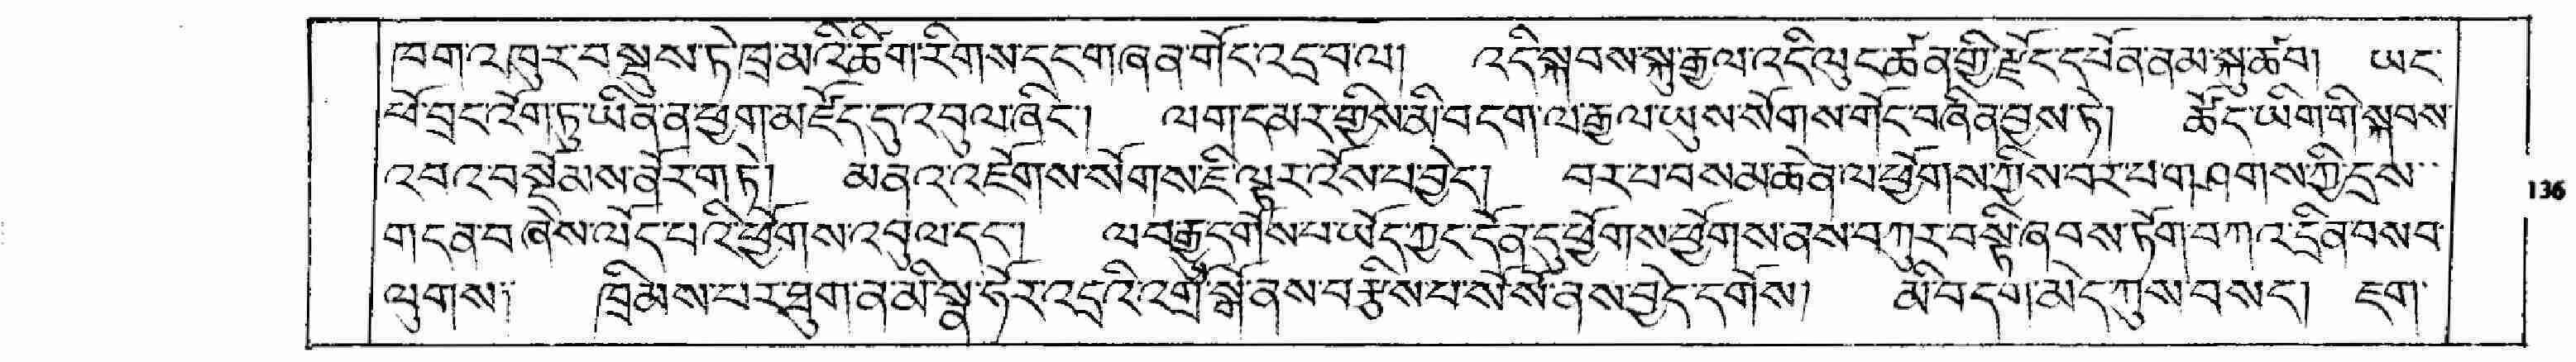 ཁག་འཁུར་བསྡུས་ཏེ་ཁྲ་མའི་ཚིག་རིགས་དང་གཞན་གོང་འདྲ་བ་ལ། འདི་སྐབས་སྐུ་རྒྱལ་འདི་ལུང་ཚན་གྱི་རྫོང་དཔོན་ནམ་སྐུ་ཚབ། ཡང་
ཕོ་བྲང་འོག་ཏུ་ཡིན་ན་ཕྱག་མཛོད་དུ་འབུལ་ཞིང་། ལག་དམར་གྱིས་མི་བདག་ལ་རྒྱལ་ཡུས་སོགས་གོང་བཞིན་བྱས་ཏེ། ཚོད་ཡིག་གི་སྐབས་
འབའ་བསྡོམས་ནོར་ག་ཏེ། མནའ་འཛོགས་སོགས་ཇི་ལྟར་འོས་པ་བྱེད། བར་པ་བསམ་ཆེན་ལ་ཕྱོགས་ཀྱིས་བར་པ་གཤགས་ཀྱི་དྲས་
གདན་བཞེས་ལོད་པའི་ཕྱོགས་འབུལ་དང་། ལབ་རྒྱུ་དགོས་པ་ཡོད་ཀྱང་དོན་དུ་ཕྱོགས་ཕྱོགས་ནས་བཀུར་བསྟི་ཞབས་ཏོག་བཀའ་དྲིན་བསབ་
ལུགས། ཁྲིམས་པར་ཐུག་ན་མི་སྣ་ཧོར་འདྲའི་འགྲོ་སྒོ་ནས་བརྩིས་པ་སོ་སོ་ནས་བྱེད་དགོས། མི་བདག་མེད་ཀུས་བསད། ཇག་
136